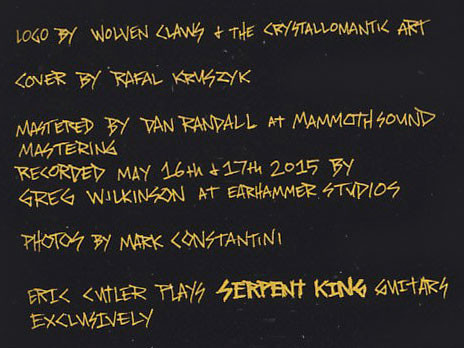 LOGO BY WOLVEN CLAWS & THE CRYSTALLOMANTIC ART
COVER BY RAFAL KRUSZYK
MASTERED BY DAN RANDALL AT MAMMOTHSOUND
MASTERING
RECORDED MAY 16th & 17th 2015 BY
GREG WILKINSON AT EARHAMMER STUDIOS
PHOTOS BY MARK CONSTANTINI
ERIC CUTLER PLAYS SERPENT KING GUITARS
EXCLUSIVELY